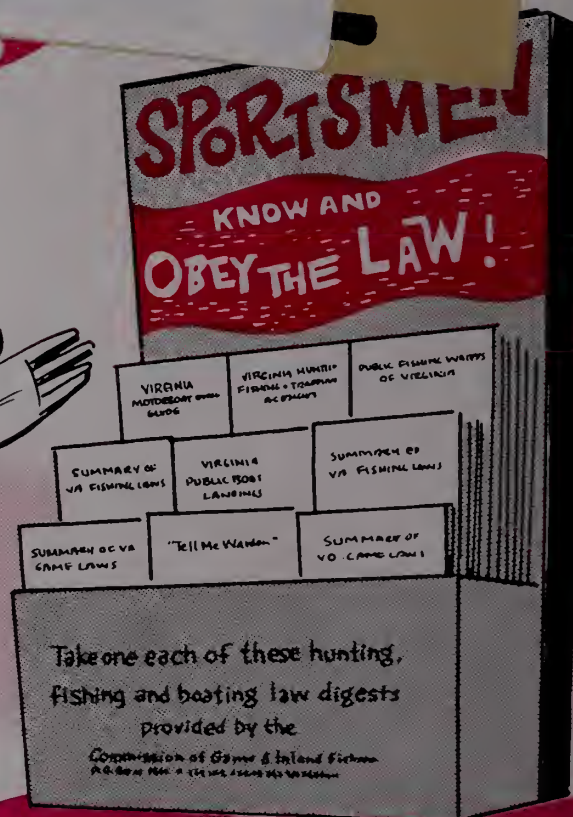 SPORTSMEN
KNOW AND
OBEY THE LAW!
VIRGINIA
MOTORBOAT
VIRGINIA HUNTING
FISHING + TRAPPING
PUBLIC FISHING WATERS
OF VIRGINIA
SUMMARY OF
VA FISHING LAWS
VIRGINIA
PUBLIC BOAT
LANDINGS
SUMMARY OF
VA FISHING LAWS
SUMMARY OF VA
GAME LAWS
"Tell Me Warden"
SUMMARY OF
VA. GAME LAWS
Take one each of these hunting,
fishing and boating law digests
provided by the
Commission of Game & Inland Fisheries